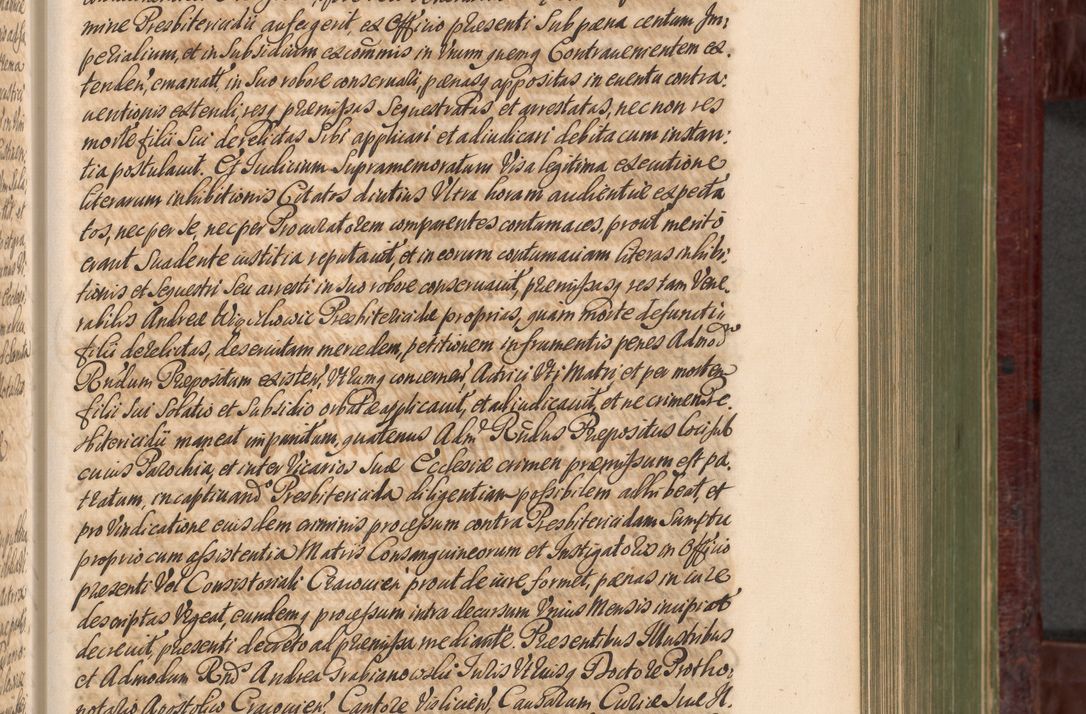 mine Presbitericidii aufugerit, ex Officio præsenti Sub pœna centum Im,
perialium, et in Subsidium excōmmis in Unumquemq Contravenientem ex,
tenden', emanatt', in suo robore conservali, pænasq appositas in eventu contra,
ventionis extendi, resq præmissas Sequestratas, et arrestatas, nec non res
morte filii Sui derelictas Sibi applicari et adiudicari debita cum instan,
tia postulavit. Et Iudicium Supramemoratum Visa legitima executione
literarum inhibitionis Citatos diutius Ultra horam audientiæ expecta
tos, nec per se, nec per Procuratorem comparentes contumaces, prout merito
erant Suadente iustitia reputavit, et in eorum contumaciam literas inhibi,
tionis et Sequestri Seu arresti in Suo robore conservavit, præmissasq res tam Vene,
rabilis Andreæ Presbitericidæ proprias, quam morte defuncti
filii derelictas, deservitam mercedem, petitionem in frumentis penes Admod
Rndum Præpositum existen', Utrumq concernen' Actrici Uti Matri et per mortem
filii Sui Solatio et Subsidio orbatæ applicavit, et adiudicavit, et ne crimen Pre
sbitericidii maneat impunitum, quatenus Adm Rndus Præpositus loci sub
cuius Parochia, et inter Vicarios Suæ Ecclesiæ crimen præmissum est pa,
tratum, in captivand Presbitericida diligentiam possibilem adhibeat, et
pro Vindicatione eiusdem criminis processum contra Presbitericidam Sumptu
proprio cum assistentia Matris Consanguineorum et Instigatoris in Officio
præsenti Vel Consistoriali Cracovien' prout de iure formet, pænas in iure
descriptas Vrgeat, eundemq processum intra decursum Unius Mensis incipiat
decrevit, præsenti decreto ad præmissa mediante. Præsentibus Illustribus
et Admodum Rnd Andrea Grabianowski Iuris Utriusq Doctore Protho,
notario Apostolico Cracovien', Cantore Vielicien', Causarum Curiæ Suæ